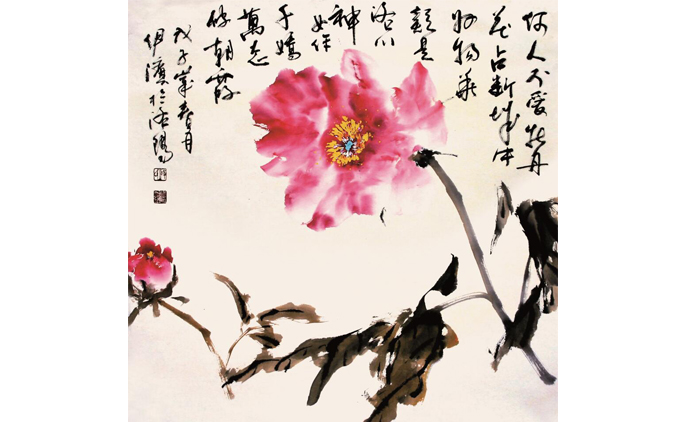 何人不愛牡丹
花占断城中
好物華
疑是
洛川
神
女作
千嬌
萬态
破朝霞
戊子年春月
伊於洛陽